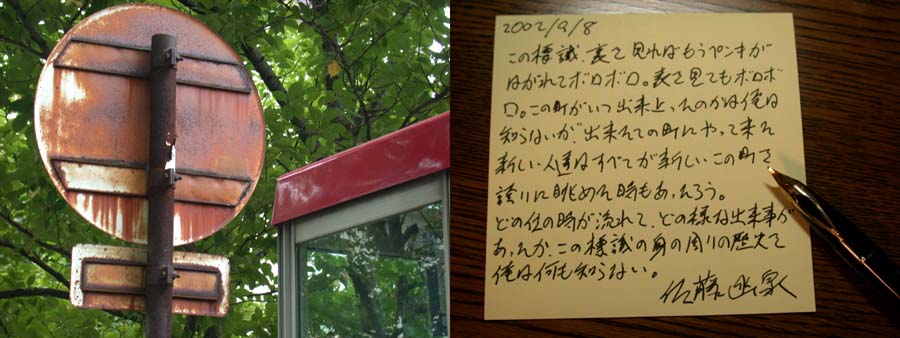 2002/9/8
この標識、裏を見ればもうペンキが
はがれてボロボロ。表を見てもボロボ
ロ。この町がいつ出来上ったのかは俺は
知らないが、出来たての町にやって来た
新しい人達はすべてが新しいこの町を
誇りに眺めた時もあったろう。
どの位の時が流れて、どの様な出来事が
あったか、この標識の身の周りの歴史を
俺は何も知らない。
佐藤